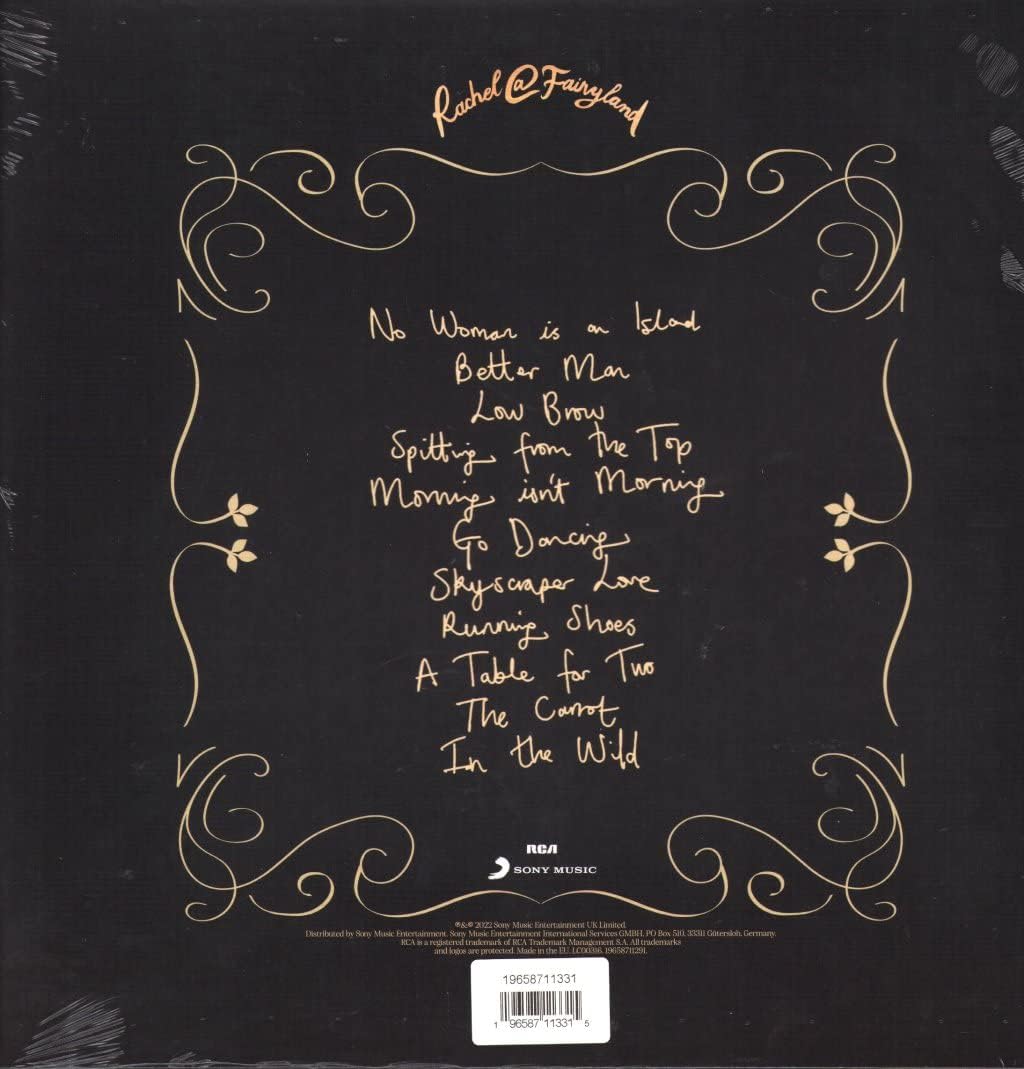 Rachel @ Fairyland
No Woman is an Island
Better Man
Low Brow
Spitting from the Top
Morning isn't Morning
Go Dancing
Skyscraper Love
Running Shoes
A Table for Two
The Carrot
In the Wild
RCA
SONY MUSIC
℗&© 2022 Sony Music Entertainment UK Limited.
Distributed by Sony Music Entertainment. Sony Music Entertainment International Services GMBH, PO Box 510, 33311 Gütersloh, Germany.
RCA is a registered trademark of RCA Trademark Management S.A. All trademarks
and logos are protected. Made in the EU. LC00316. 19658711291.
19658711331
1 96587 11331 5